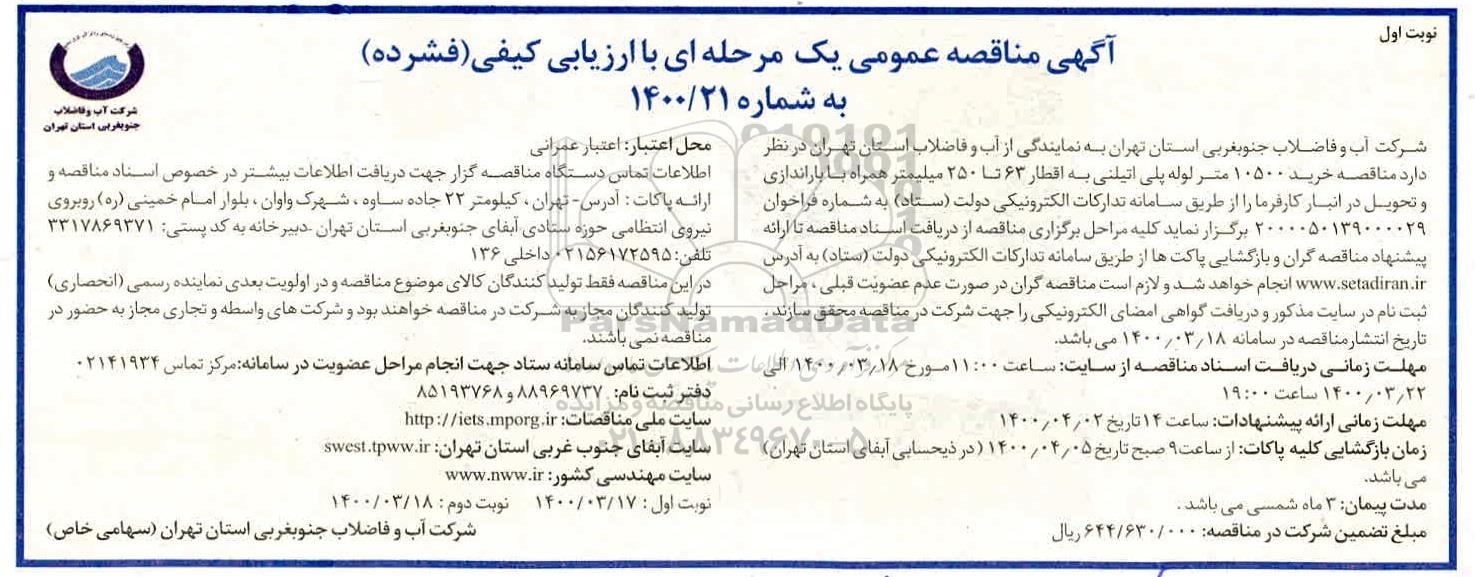 نوبت اول
آگهی مناقصه عمومی یک مرحله ای با ارزیابی کیفی (فشرده)
به شماره ۱۴۰۰/۲۱
شرکت آب و فاضلاب
جنوبغربی استان تهران
شرکت آب و فاضلاب جنوبغربی استان تهران به نمایندگی از آب و فاضلاب استان تهران در نظر
دارد مناقصه خرید ۱۰۵۰۰ متر لوله پلی اتیلنی به اقطار ۶۳ تا ۲۵۰ میلیمتر همراه با باراندازی
و تحویل در انبار کارفرما را از طریق سامانه تدارکات الکترونیکی دولت (ستاد) به شماره فراخوان
۲۰۰۰۰۵۰۱۳۹۰۰۰۰۲۹ برگزار نماید کلیه مراحل برگزاری مناقصه از دریافت اسناد مناقصه تا ارائه
پیشنهاد مناقصه گران و بازگشایی پاکت ها از طریق سامانه تدارکات الکترونیکی دولت (ستاد) به آدرس
www.setadiran.ir انجام خواهد شد و لازم است مناقصه گران در صورت عدم عضویت قبلی ، مراحل
ثبت نام در سایت مذکور و دریافت گواهی امضای الکترونیکی را جهت شرکت در مناقصه محقق سازند .
تاریخ انتشار مناقصه در سامانه ۱۴۰۰٫۰۳٫۱۸ می باشد.
مهلت زمانی دریافت اسناد مناقصه از سایت: ساعت ۱۱:۰۰ مورخ ۱۴۰۰٫۰۳٫۱۸ الی
۱۴۰۰٫۰۳٫۲۲ ساعت ۱۹:۰۰
مهلت زمانی ارائه پیشنهادات: ساعت ۱۴ تاریخ ۱۴۰۰٫۰۴٫۰۲
زمان بازگشایی کلیه پاکات: از ساعت ۹ صبح تاریخ ۱۴۰۰٫۰۴٫۰۵ (در ذیحسابی آبفای استان تهران)
می باشد.
مدت پیمان: ۳ ماه شمسی می باشد .
مبلغ تضمین شرکت در مناقصه: ۶۴۴/۶۳۰/۰۰۰ ریال
محل اعتبار: اعتبار عمرانی
اطلاعات تماس دستگاه مناقصه گزار جهت دریافت اطلاعات بیشتر در خصوص اسناد مناقصه و
ارائه پاکات : آدرس- تهران ، کیلومتر ۲۳ جاده ساوه ، شهرک واوان ، بلوار امام خمینی (ره) روبروی
نیروی انتظامی حوزه ستادی آبفای جنوبغربی استان تهران -دبیرخانه به کد پستی: ۳۳۱۷۸۶۹۳۷۱
تلفن: ۰۲۱۵۶۱۷۲۵۹۵ داخلی ۱۳۶
در این مناقصه فقط تولید کنندگان کالای موضوع مناقصه و در اولویت بعدی نماینده رسمی (انحصاری)
تولید کنندگان مجاز به شرکت در مناقصه خواهند بود و شرکت های واسطه و تجاری مجاز به حضور در
مناقصه نمی باشند.
اطلاعات تماس سامانه ستاد جهت انجام مراحل عضویت در سامانه: مرکز تماس ۰۲۱۴۱۹۳۴
دفتر ثبت نام: ۸۸۹۶۹۷۳۷ و ۸۵۱۹۳۷۶۸
سایت ملی مناقصات: http://iets.mporg.ir
سایت آبفای جنوب غربی استان تهران: swest.tpww.ir
سایت مهندسی کشور: www.nww.ir
نوبت اول : ۱۴۰۰/۰۳/۱۷ نوبت دوم : ۱۴۰۰/۰۳/۱۸
شرکت آب و فاضلاب جنوبغربی استان تهران (سهامی خاص)
ParsNamadData
پایگاه اطلاع رسانی مناقصه و مزایده
۰۲۱-۸۸۳۴۹۶۷۰-۵